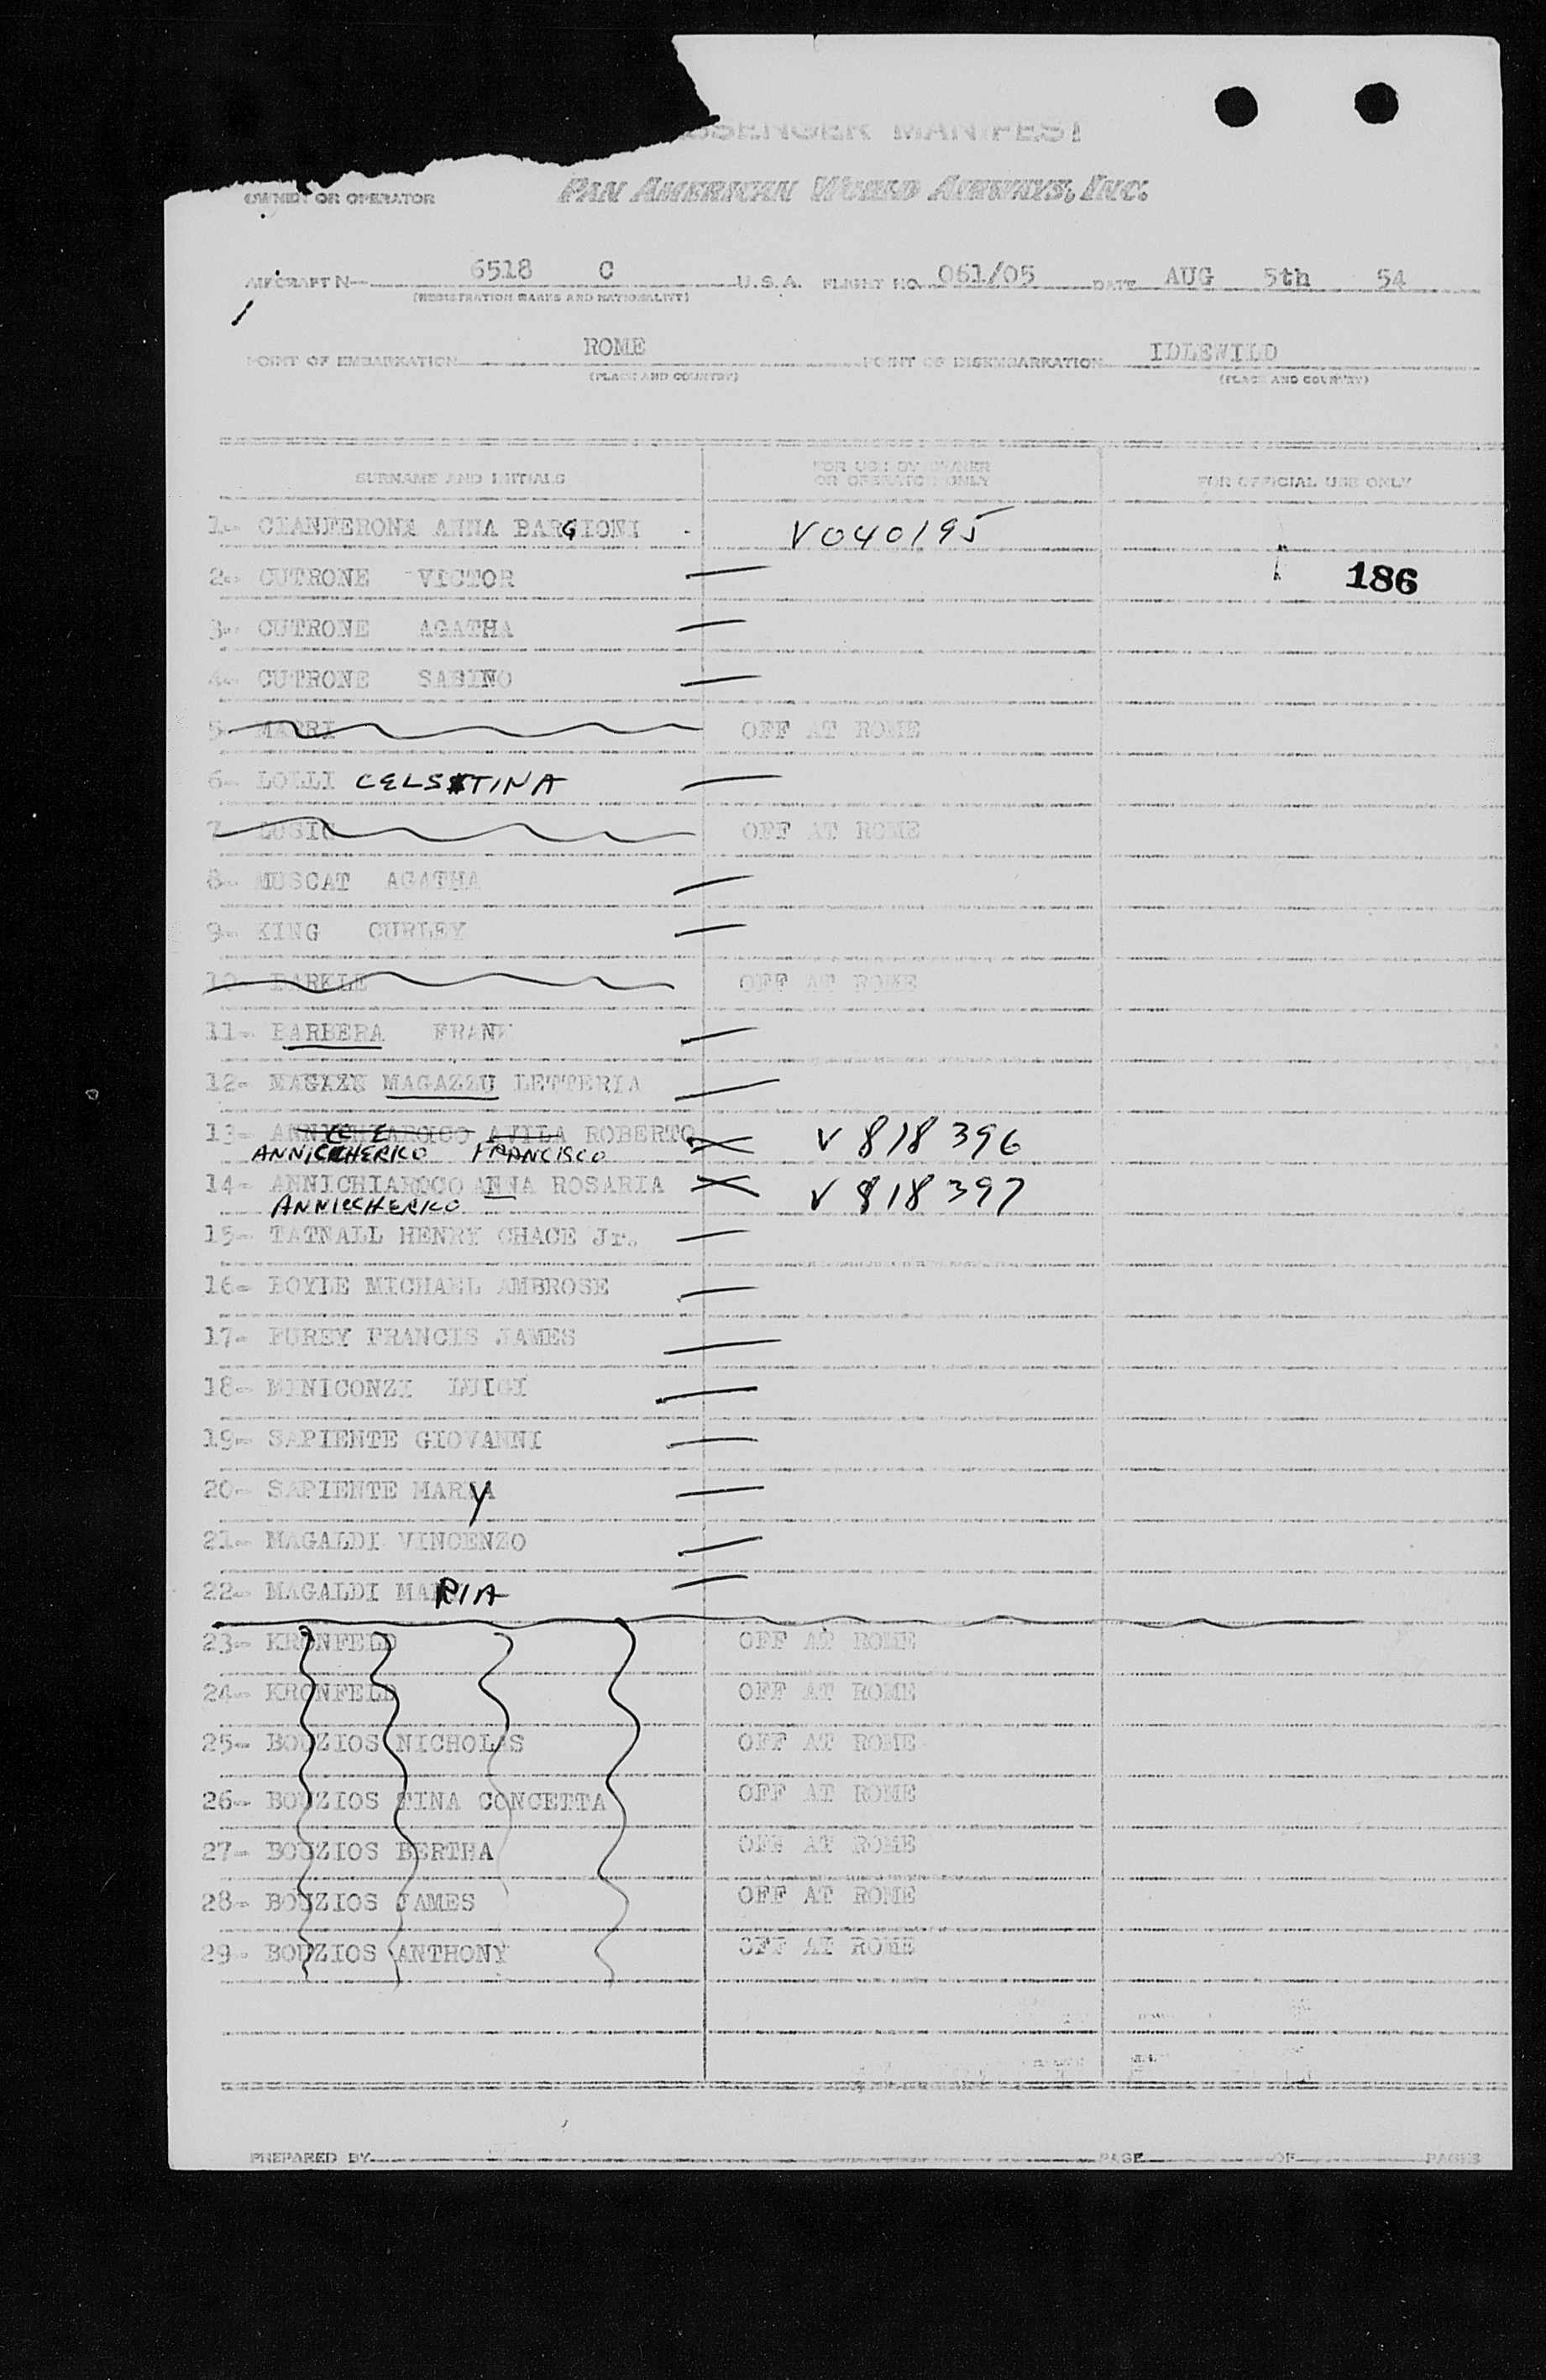 SSENGER MANIFEST
OWNER OR OPERATOR PAN AMERICAN WORLD AIRWAYS, INC.
AIRCRAFT N 6518 C U.S.A. FLIGHT NO. 061/05 DATE AUG 5th 54
(REGISTRATION MARKS AND NATIONALITY)
POINT OF EMBARKATION ROME POINT OF DISEMBARKATION IDLEWILD
(PLACE AND COUNTRY) (PLACE AND COUNTRY)
SURNAME AND INITIALS FOR USE BY OWNER OR OPERATOR ONLY FOR OFFICIAL USE ONLY
1- CIANFERONI ANNA BARGIONI - V040195
2- CUTRONE VICTOR — 186
3- CUTRONE AGATHA —
4- CUTRONE SABINO —
5- OFF AT ROME
6- LOLLI CELSTINA —
7- LUSIC OFF AT ROME
8- MUSCAT AGATHA —
9- KING CURLEY —
10- BARKLE OFF AT ROME
11- BARBERA FRANK —
12- MAGAZZU LETTERIA —
13- AVILA ROBERTO V 818 396
ANNICCHERICO FRANCISCO
14- ANNICHIAROCO ANNA ROSARIA V 818 397
ANNICCHERICO
15- TATNALL HENRY CHACE Jr. —
16- BOYLE MICHAEL AMBROSE —
17- FUREY FRANCIS JAMES —
18- MINICONZI LUIGI —
19- SAPIENTE GIOVANNI —
20- SAPIENTE MARY —
21- MAGALDI VINCENZO —
22- MAGALDI MARIA —
23- KRONFELD OFF AT ROME
24- KRONFELD OFF AT ROME
25- BOUZIOS NICHOLAS OFF AT ROME
26- BOUZIOS TINA CONCETTA OFF AT ROME
27- BOUZIOS BERTHA OFF AT ROME
28- BOUZIOS JAMES OFF AT ROME
29- BOUZIOS ANTHONY OFF AT ROME
PREPARED BY PAGE OF PAGES